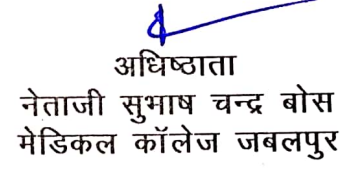 अधिष्ठाता
नेताजी सुभाष चन्द्र बोस
मेडिकल कॉलेज जबलपुर